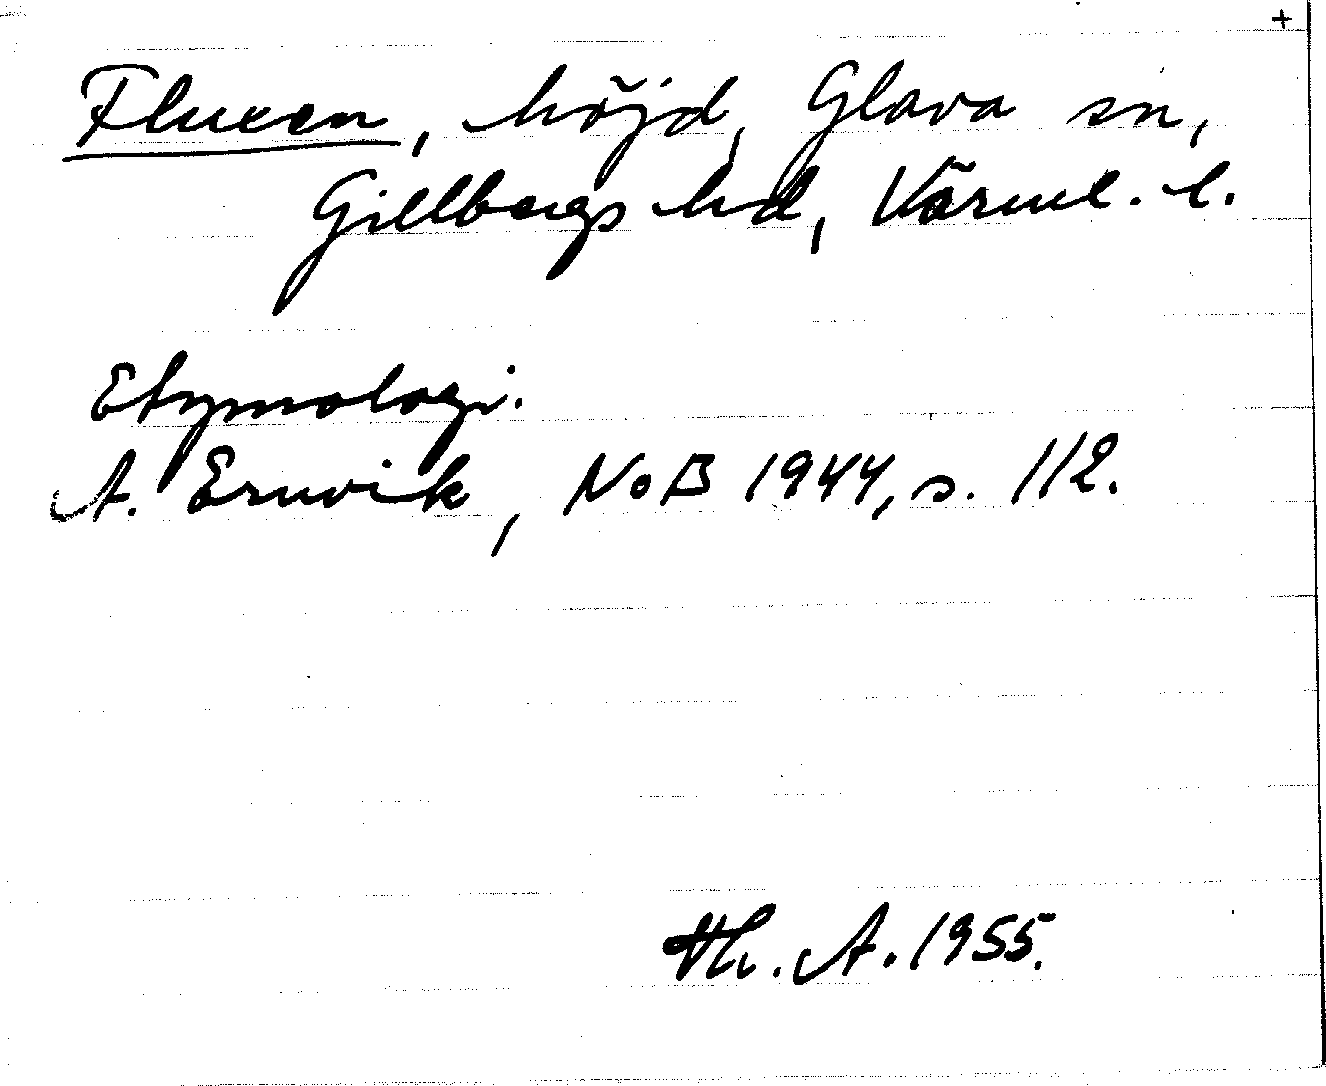 +
Fluxen, höjd, Glava sn,
Gillbergs hd, Värml. l.
Etymologi.
A. Ernvik, NoB 1944, s. 112.
Th. A. 1955.